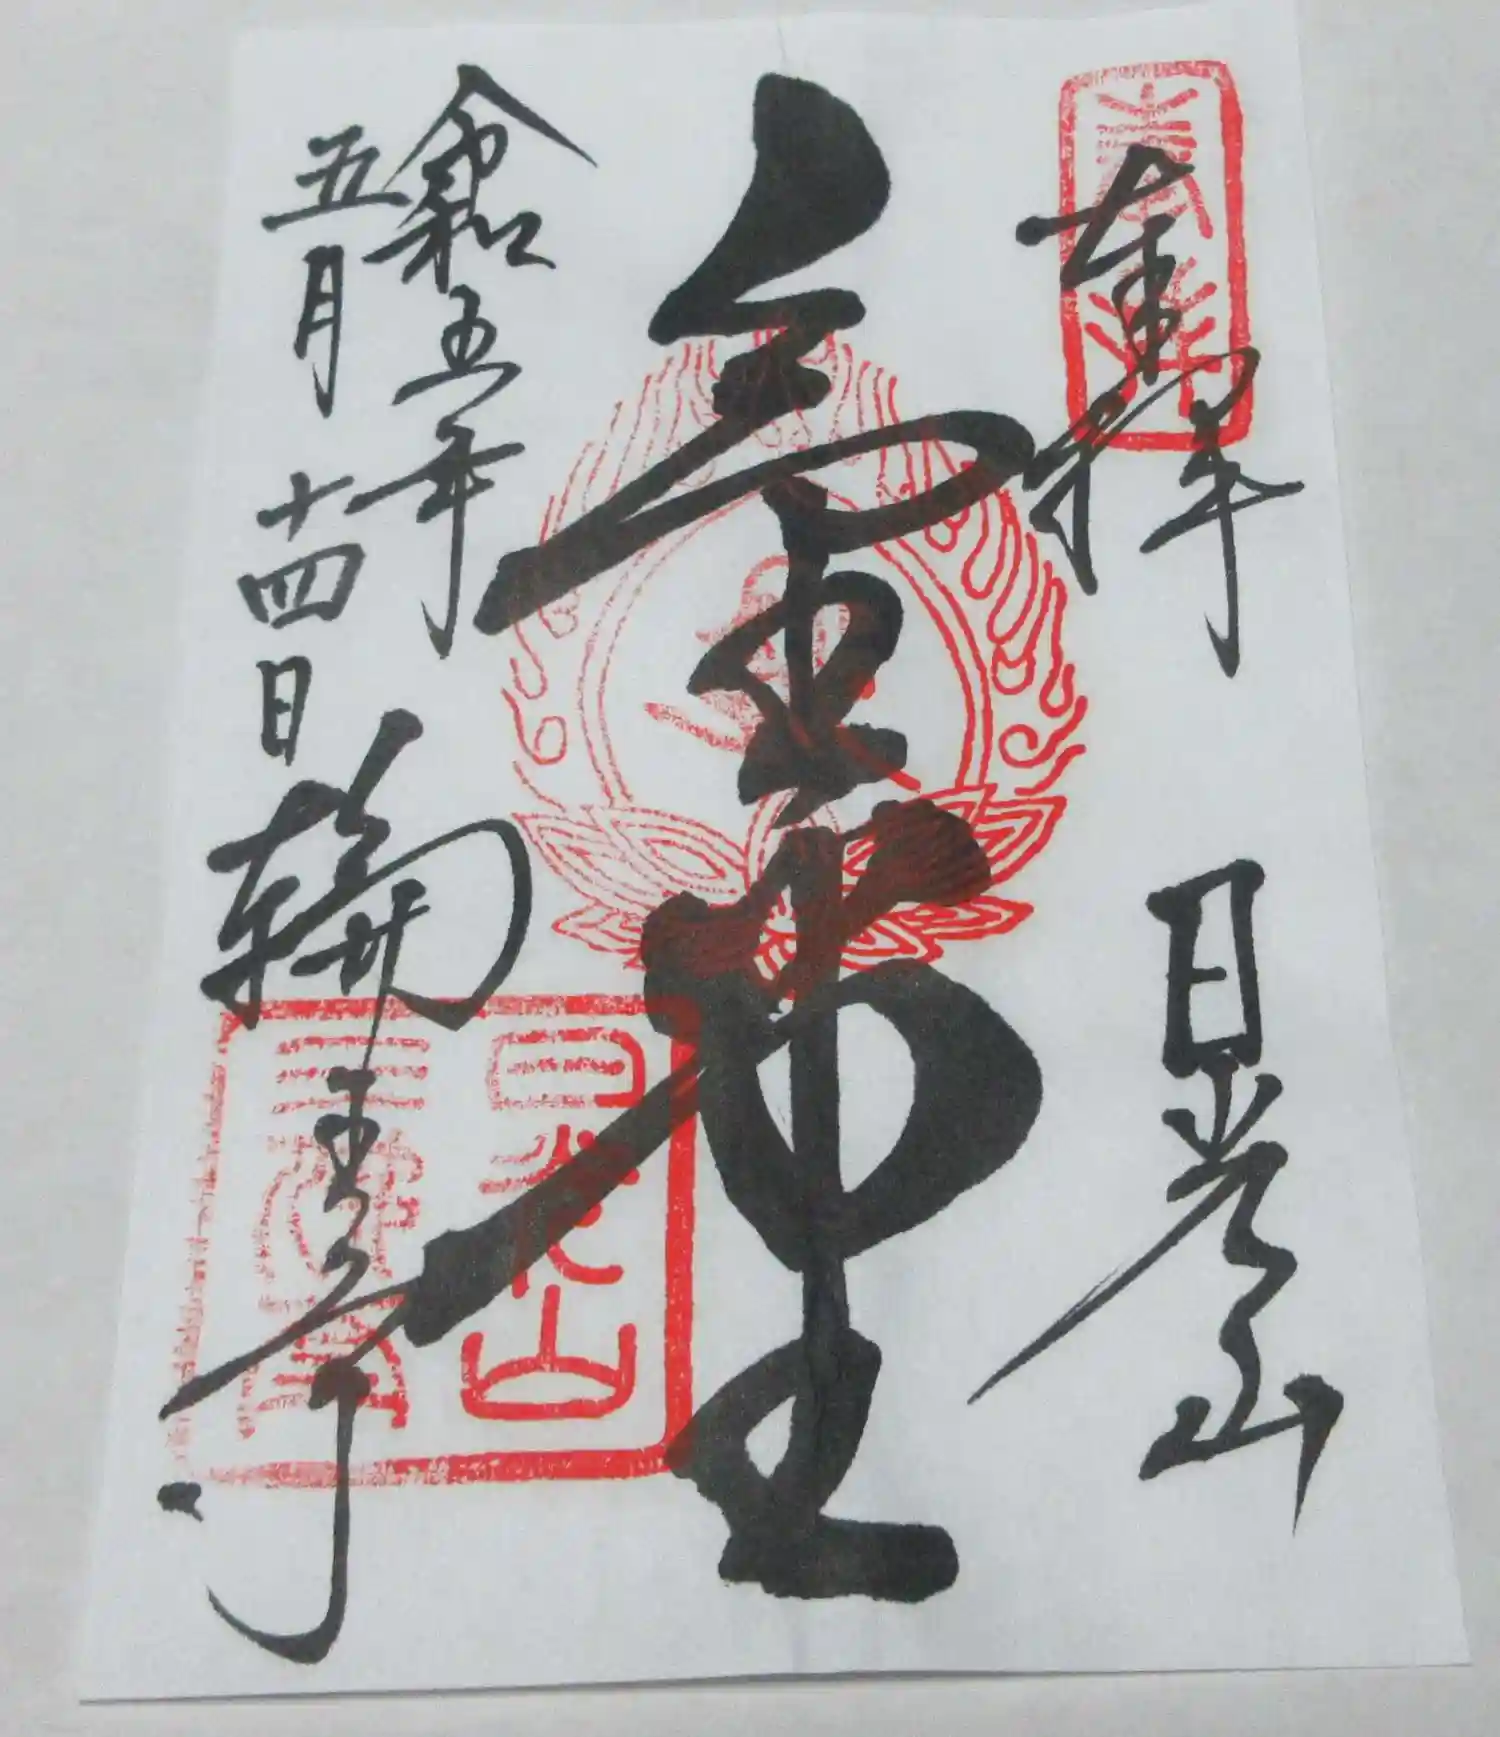 奉拝
日光山
金堂
令和五年
五月十四日
輪王寺
日光山